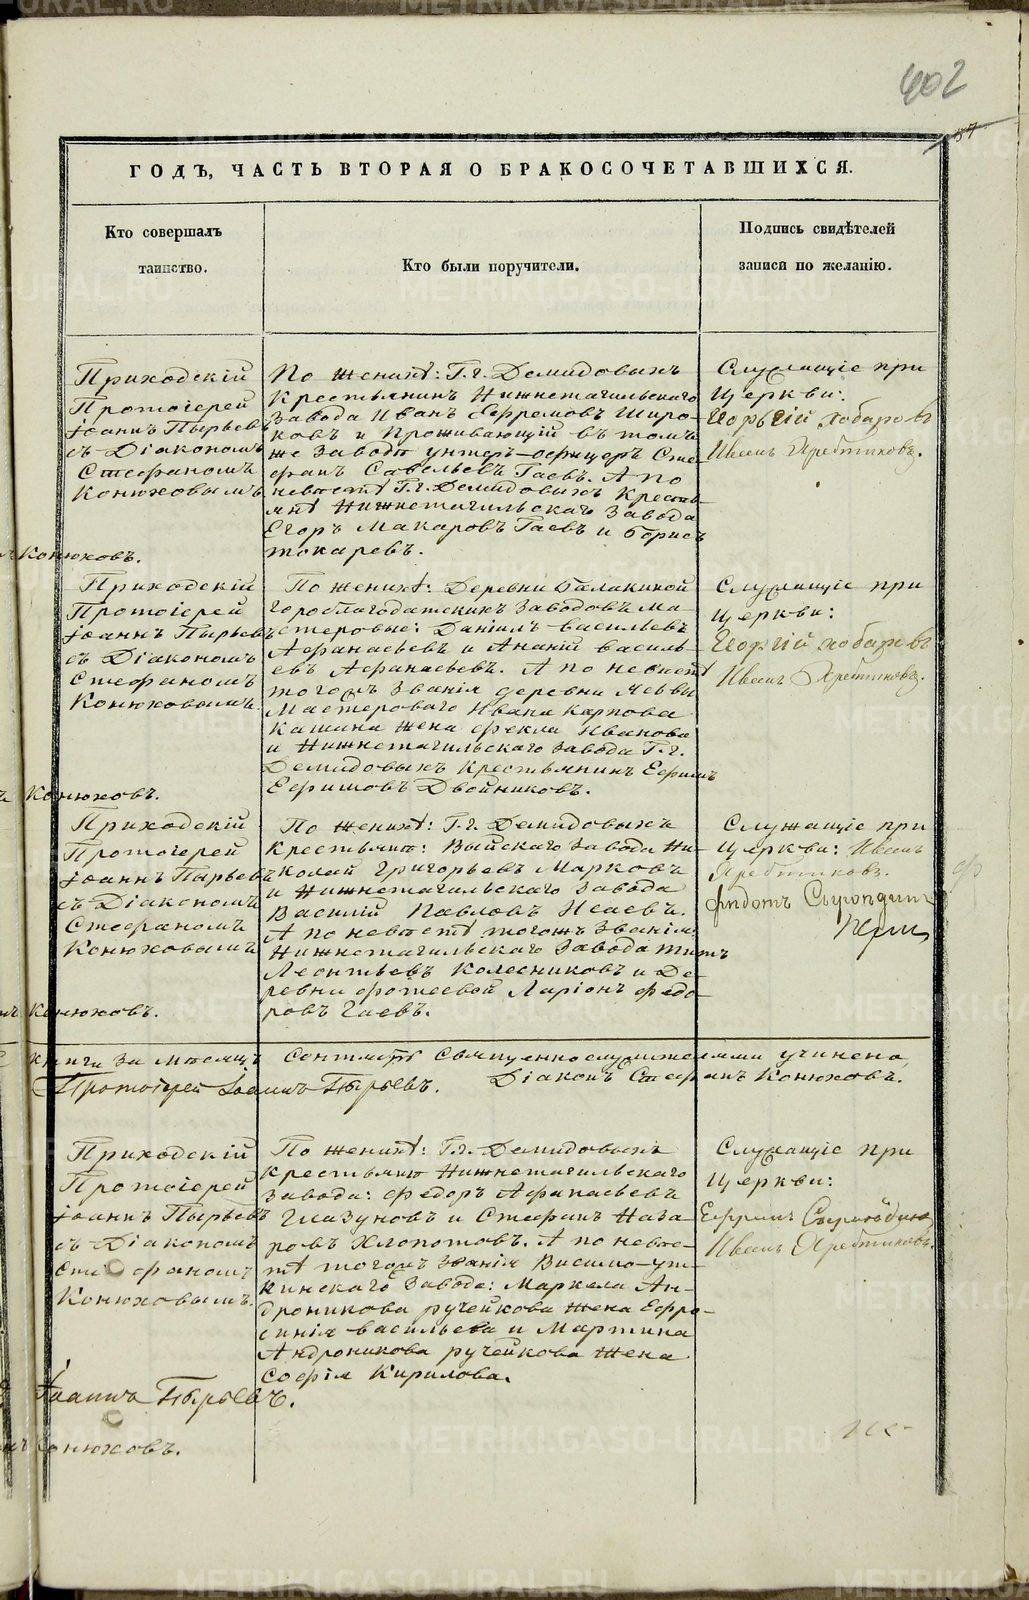 402
57
ГОДЪ, ЧАСТЬ ВТОРАЯ О БРАКОСОЧЕТАВШИХСЯ.
Кто совершалъ
таинство.
Кто были поручители.
Подпись свидѣтелей
записи по желанію.
Приходскій
Протоіерей
Іоаннъ Пырьевъ
съ Діакономъ
Стефаномъ
Конюховымъ.
Конюховъ.
По женихѣ: Г.г. Демидовыхъ
Крестьянинъ Нижнетагильскаго
Завода Иванъ Ефремовъ Широ-
ковъ и Проживающій въ томъ
же заводѣ унтеръ-офицеръ Сте
фанъ Савельевъ Гаевъ. А по
невѣстѣ Г.г. Демидовыхъ Кресть-
янѣ Нижнетагильскаго Завода
Егоръ Макаровъ Гаевъ и Борисъ
Токаревъ.
Служащіе при
Церкви:
Иванъ
Приходскій
Протоіерей
Іоаннъ Пырьевъ
съ Діакономъ
Стефаномъ
Конюховымъ.
Конюховъ.
По женихѣ: Деревни Балакиной
Гороблагодатскихъ Заводовъ Ма-
стеровые: Даніилъ Васильевъ
Афанасьевъ и Ананій Василь-
евъ Афанасьевъ. А по невѣстѣ
тогожъ Званія деревни Лебы
Мастероваго Ивана Карпова
Кашина жена Фекла Иванова
и Нижнетагильскаго Завода Г.г.
Демидовыхъ Крестьянинъ Ефимъ
Ефимовъ Двойниковъ.
Служащіе при
Церкви:
Иванъ
Приходскій
Протоіерей
Іоаннъ Пырьевъ
съ Діакономъ
Стефаномъ
Конюховымъ
Конюховъ.
По женихѣ: Г.г. Демидовыхъ
Крестьянѣ: Выйскаго Завода Ни-
колай Григорьевъ Марковъ
и Нижнетагильскаго Завода
Василій Павловъ Исаевъ.
А по невѣстѣ тогожъ Званія:
Нижнетагильскаго Завода Титъ
Леонтьевъ Колесниковъ и Де-
ревни Фотеевой Ларіонъ Федо-
ровъ Гаевъ.
Служащіе при
Церкви: Иванъ
книги за мѣсяцъ Сентябрь Священнослужителями учинена
Протоіерей Іоаннъ Пырьевъ. Діаконъ Стефанъ Конюховъ.
Приходскій
Протоіерей
Іоаннъ Пырьевъ
съ Діакономъ
Стефаномъ
Конюховымъ.
По женихѣ: Г.г. Демидовыхъ
Крестьяне Нижнетагильскаго
Завода: Федоръ Афанасьевъ
Глазуновъ и Стефанъ Наза
ровъ Хлопотовъ. А по невѣс-
тѣ тогожъ Званія Висимо-ут-
кинскаго Завода: Маркела Ан-
дроникова Ручейкова жена Ефро-
синія Васильева и Мартина
Андроникова Ручейкова жена
Софія Кирилова.
Служащіе при
Церкви:
Иванъ
Іоаннъ Пырьевъ.
Конюховъ.
METRIKI.GASO-URAL.RU